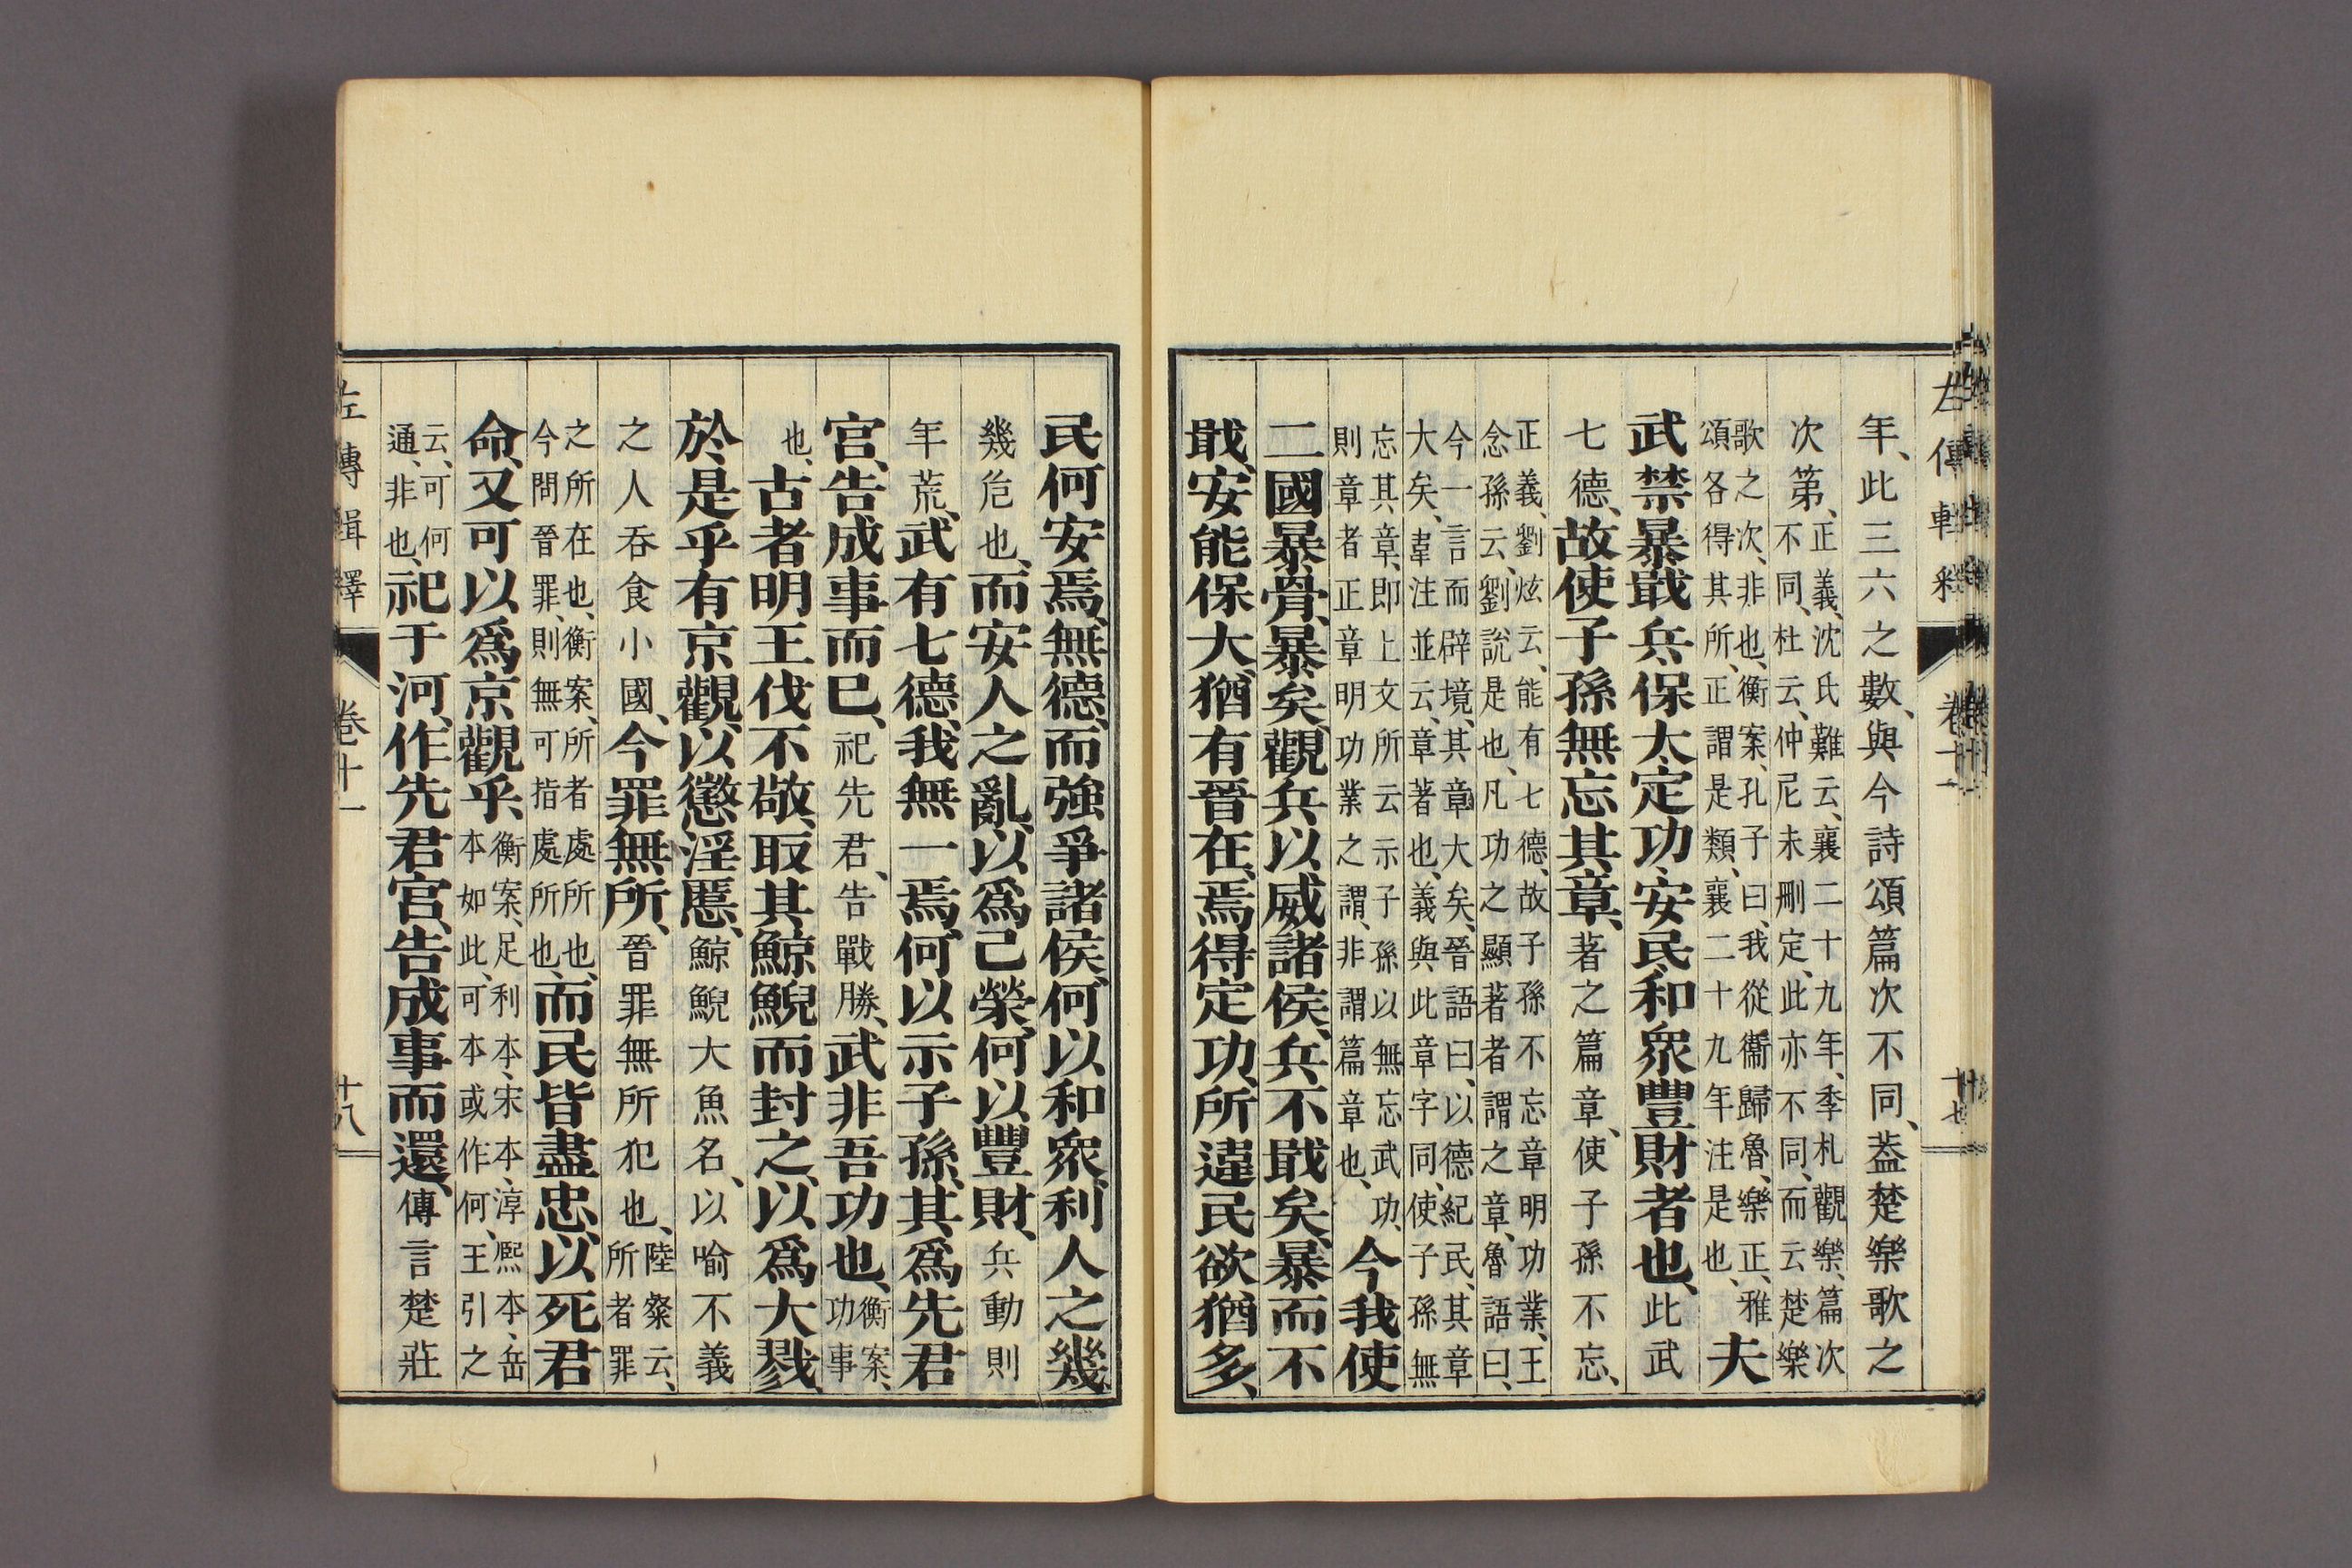 左傳輯釋 卷十一 十七
年、此三六之數、與今詩頌篇次不同、葢楚樂歌之
次第、正義、沈氏難云、襄二十九年、季札觀樂、篇次
不同、杜云、仲尼未刪定、此亦不同、而云楚樂
歌之次、非也、衡案、孔子曰、我從衞歸魯、樂正、雅
頌各得其所、正謂是類、襄二十九年注是也、夫
武禁暴戢兵、保大定功、安民和眾豐財者也、此武
七德、故使子孫無忘其章、著之篇章、使子孫不忘、
正義、劉炫云、能有七德、故子孫不忘章明功業、王
念孫云、劉說是也、凡功之顯著者謂之章、魯語曰、
今一言而辟境、其章大矣、晉語曰、以德紀民、其章
大矣、韋注並云、章著也、義與此章字同、使子孫無
忘其章、即上文所云示子孫以無忘武功、
則章者正章明功業之謂、非謂篇章也、今我使
二國暴骨、暴矣、觀兵以威諸侯、兵不戢矣、暴而不
戢、安能保大、猶有晉在、焉得定功、所違民欲猶多、
民何安焉、無德、而強爭諸侯、何以和眾、利人之幾
幾危也、而安人之亂、以爲己榮、何以豐財、兵動則
年荒、武有七德、我無一焉、何以示子孫、其爲先君
宮、告成事而已、祀先君、告戰勝、武非吾功也、衡案、
功事
也、古者明王伐不敬、取其鯨鯢而封之、以爲大戮、
於是乎有京觀、以懲淫慝、鯨鯢大魚名、以喻不義
之人吞食小國、今罪無所、晉罪無所犯也、陸粲云、
所者罪
之所在也、衡案、所者處所也、
今問晉罪、則無可指處所也、而民皆盡忠、以死君
命、又可以爲京觀乎、衡案、足利本、宋本、淳熙本、岳
本如此、可本或作何、王引之
云、可何
通、非也、祀于河、作先君宮、告成事而還、傳言楚莊
左傳輯釋 卷十一 十八